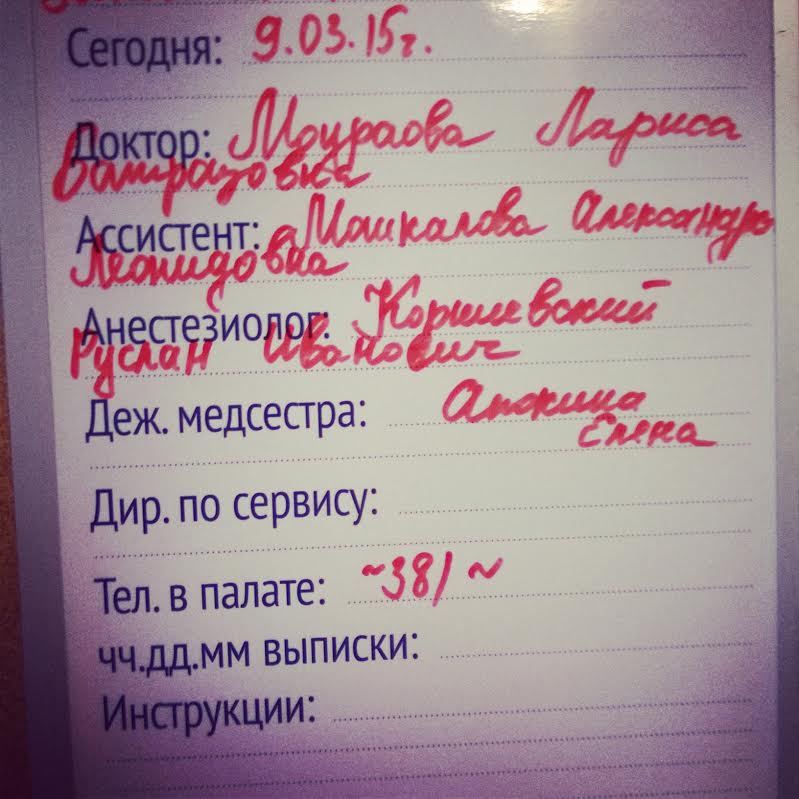 Сегодня: 9.03.15г.
Доктор: Моураова Лариса
Батразовна
Ассистент: Машкалова Александра
Леонидовна
Анестезиолог:
Руслан Иванович
Деж. медсестра: Апокина
Елена
Дир. по сервису:
Тел. в палате: ~381~
чч.дд.мм выписки:
Инструкции: